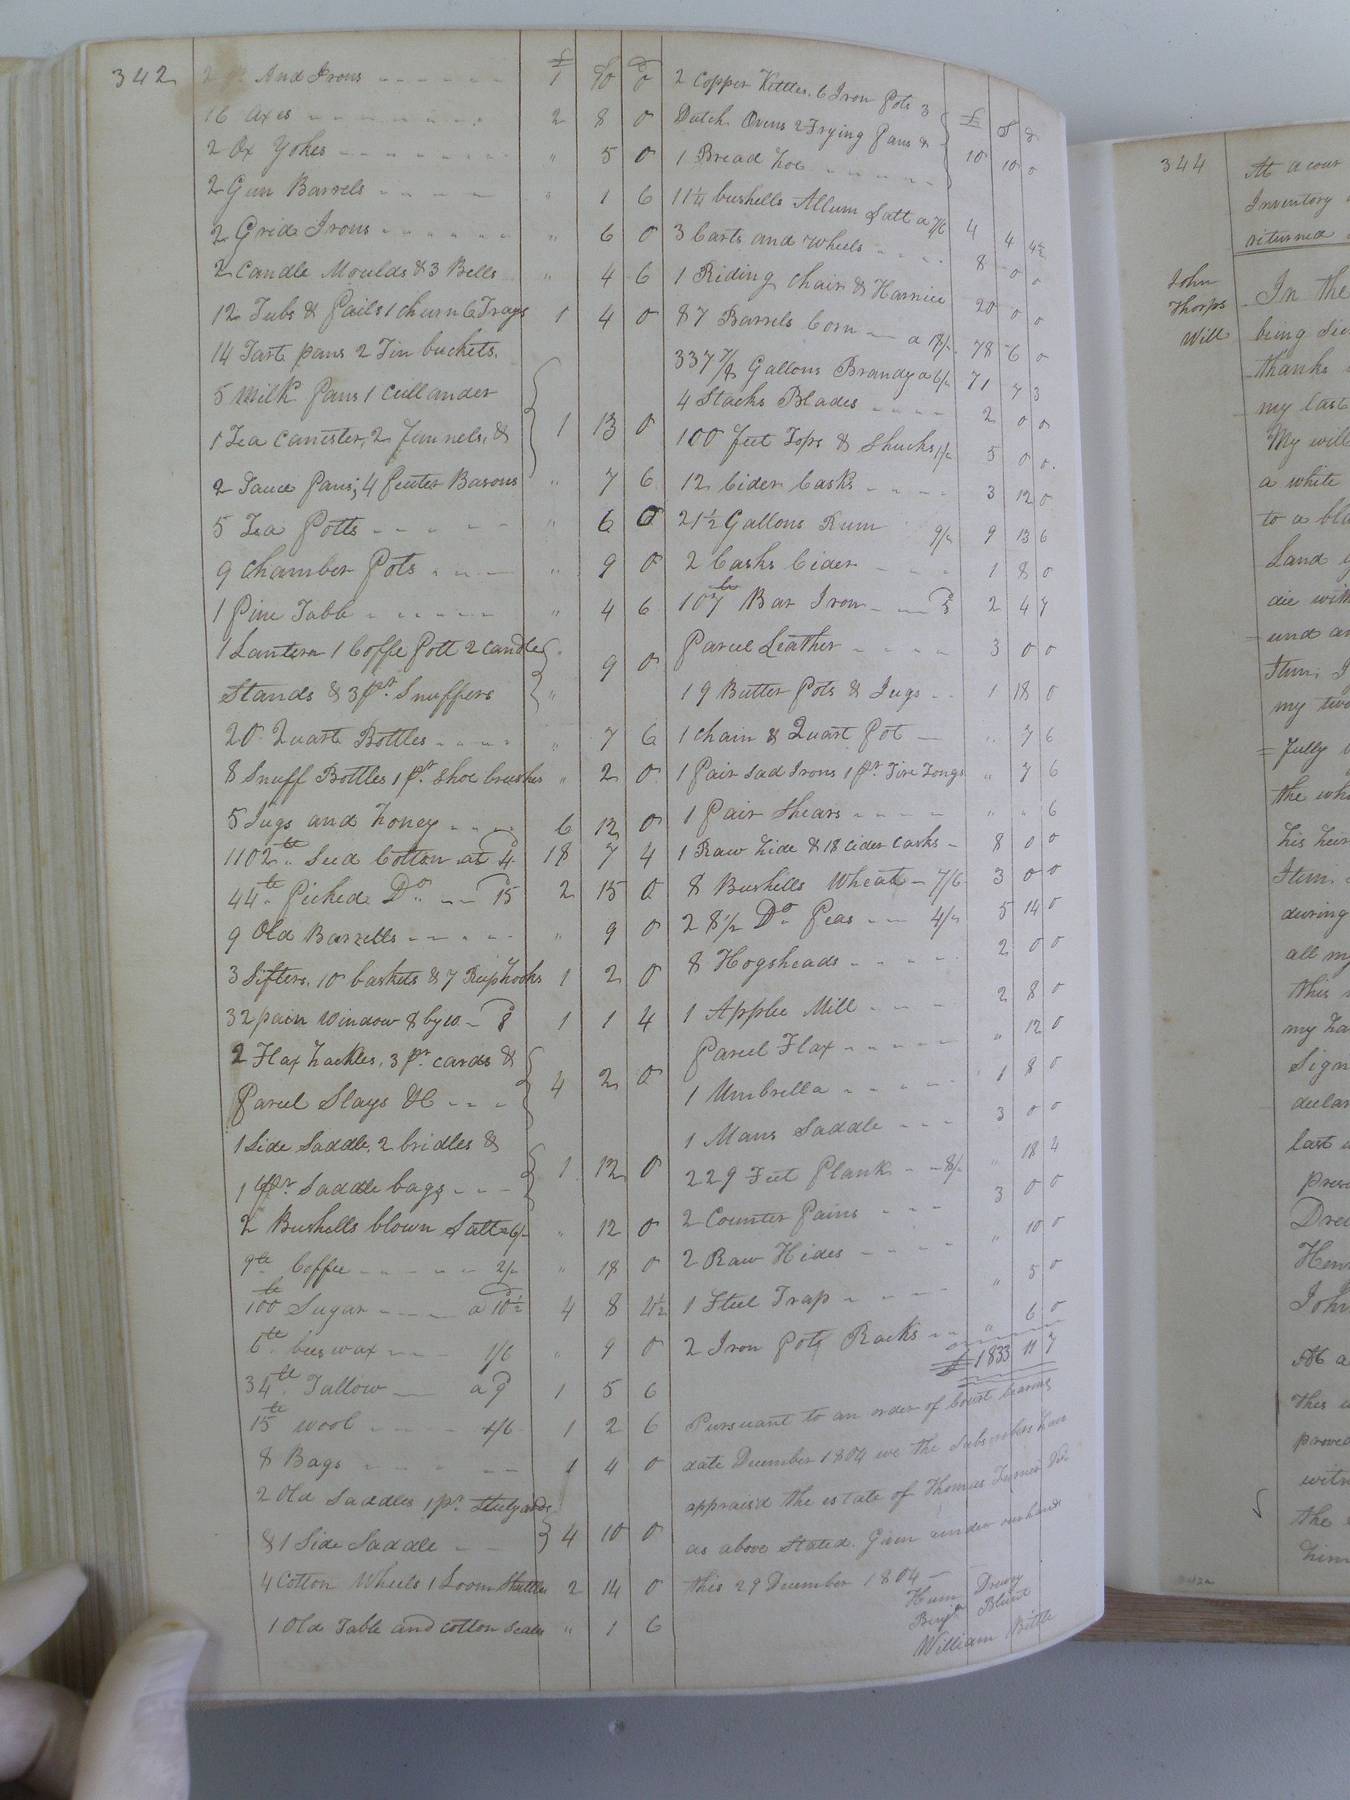 342
And Irons £ 1 S 10 D 0
16 Axes 2 8 0
2 Ox Yokes " 5 0
2 Gun Barrels " 1 6
2 Grid Irons " 6 0
2 Candle Moulds & 3 Bells " 4 6
12 Tubs & Pails 1 churn 6 Trays 1 4 0
14 Tart pans 2 Tin buckets
5 Milk Pans 1 Cullander
1 Tea Canester, 2 Funnels, & 1 13 0
2 Sauce Pans, 4 Peuter Basons " 7 6
5 Tea Potts " 6 0
9 Chamber Pots " 9 0
1 Pine Table " 4 6
1 Lantern 1 Coffe Pott 2 Candle
Stands & 3 pr. Snuffers " 9 0
20 Quart Bottles " 7 6
8 Snuff Bottles 1 pr. Shoe brushes " 2 0
5 Jugs and honey 6 12 0
1102 lb Seed Cotton at 4 18 7 4
44 lb Picked Do 15 2 15 0
9 Old Barrells " 9 0
3 Sifters, 10 baskets & 7 Reephooks 1 2 0
32 pain Window 8 by 10 8 1 1 4
2 Flax hackles, 3 pr. cards &
Parcel Slays &C 4 2 0
1 Side Saddle, 2 bridles &
1 pr. Saddle bags 1 12 0
2 Bushells blown Salt 6/ " 12 0
9 lb Coffee 2/ " 18 0
100 lb Sugar a 10½ 4 8 4½
6 lb bees wax 1/6 " 9 0
34 lb Tallow a 9 1 5 6
15 lb wool 1/6 1 2 6
8 Bags 1 4 0
2 Old Saddles 1 pr. Stilyards
& 1 Side Saddle 4 10 0
4 Cotton Wheels 1 Loom Shuttles 2 14 0
1 Old Table and cotton Scales " 1 6
2 Copper Kettles, 6 Iron Pots 3 £ S D
Dutch Ovens 2 Frying Pans &
1 Bread hoe 10 10 0
11¼ bushells Allum Salt a 7/6 4 4 4½
3 Carts and wheels 8 0 0
1 Riding Chair & Harnice 20 0 0
87 Barrels Corn a 18/ 78 6 0
337 7/8 Gallons Brandy a 71 7 3
4 Stacks Blades 2 0 0
100 feet Tops & Shucks 1/ 5 0 0
12 Cider Casks 3 12 0
21½ Gallons Rum 9/ 9 13 6
2 Casks Cider 1 8 0
107 lb Bar Iron 5 2 4 7
Parcel Leather 3 0 0
19 Butter Pots & Jugs 1 18 0
1 Chain & Quart Pot " 7 6
1 Pair Sad Irons 1 pr. Fire Tongs " 7 6
1 Pair Shears " " 6
1 Raw hide & 18 cider casks 8 0 0
8 Bushells Wheat 7/6 3 0 0
28½ Do Peas 4/ 5 14 0
8 Hogsheads 2 0 0
1 Apple Mill 2 8 0
Parcel Flax " 12 0
1 Umbrella 1 8 0
1 Mans Saddle 3 0 0
229 Feet Plank 8/ " 18 4
2 Counter Pains 3 0 0
2 Raw Hides " 10 0
1 Steel Trap " 5 0
2 Iron Pott Racks " 6 0
£ 1833 11 7
Pursuant to an order of Court bearing
date December 1804 we the Subscribers have
appraisd the estate of Thomas Turner
as above Stated. Given under our hands
this 29 December 1804
Hum Drewry
Benja Blunt
William Bittle
344
At a cour
Inventory
returned
John
Thorps
Will
In the
being
thanks
my last
My will
a white
to a bla
Land
die with
and an
Item. I
my two
Fully
the who
his heir
Item.
during
all my
this
my ha
Sign
declar
last
Prese
Drew
Hen
John
At a
this
proved
witn
the
him